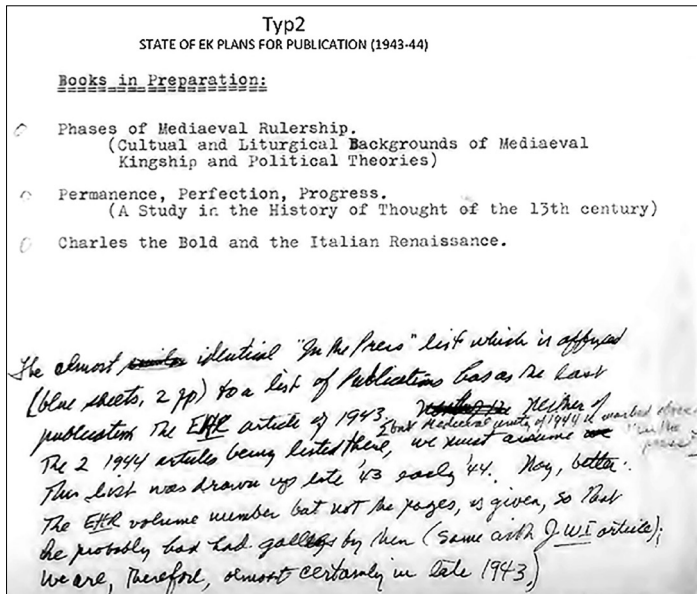 Typ2
STATE OF EK PLANS FOR PUBLICATION (1943-44)
Books in Preparation:
Phases of Mediaeval Rulership.
(Cultual and Liturgical Backgrounds of Mediaeval
Kingship and Political Theories)
Permanence, Perfection, Progress.
(A Study in the History of Thought of the 13th century)
Charles the Bold and the Italian Renaissance.
The almost identical "In the Press" list which is affixed
(blue sheets, 2 pp) to a list of Publications has as the last
publication the EHR article of 1943. Neither of
[but Medieval unity of 1944 is marked
"in the
press"]
the 2 1944 articles being listed there, we must assume
this list was drawn up late '43 early '44. Nay, better:
The EHR volume number but not the pages, is given, so that
he probably had had galleys by then (same with JWI article);
we are, therefore, almost certainly in late 1943)